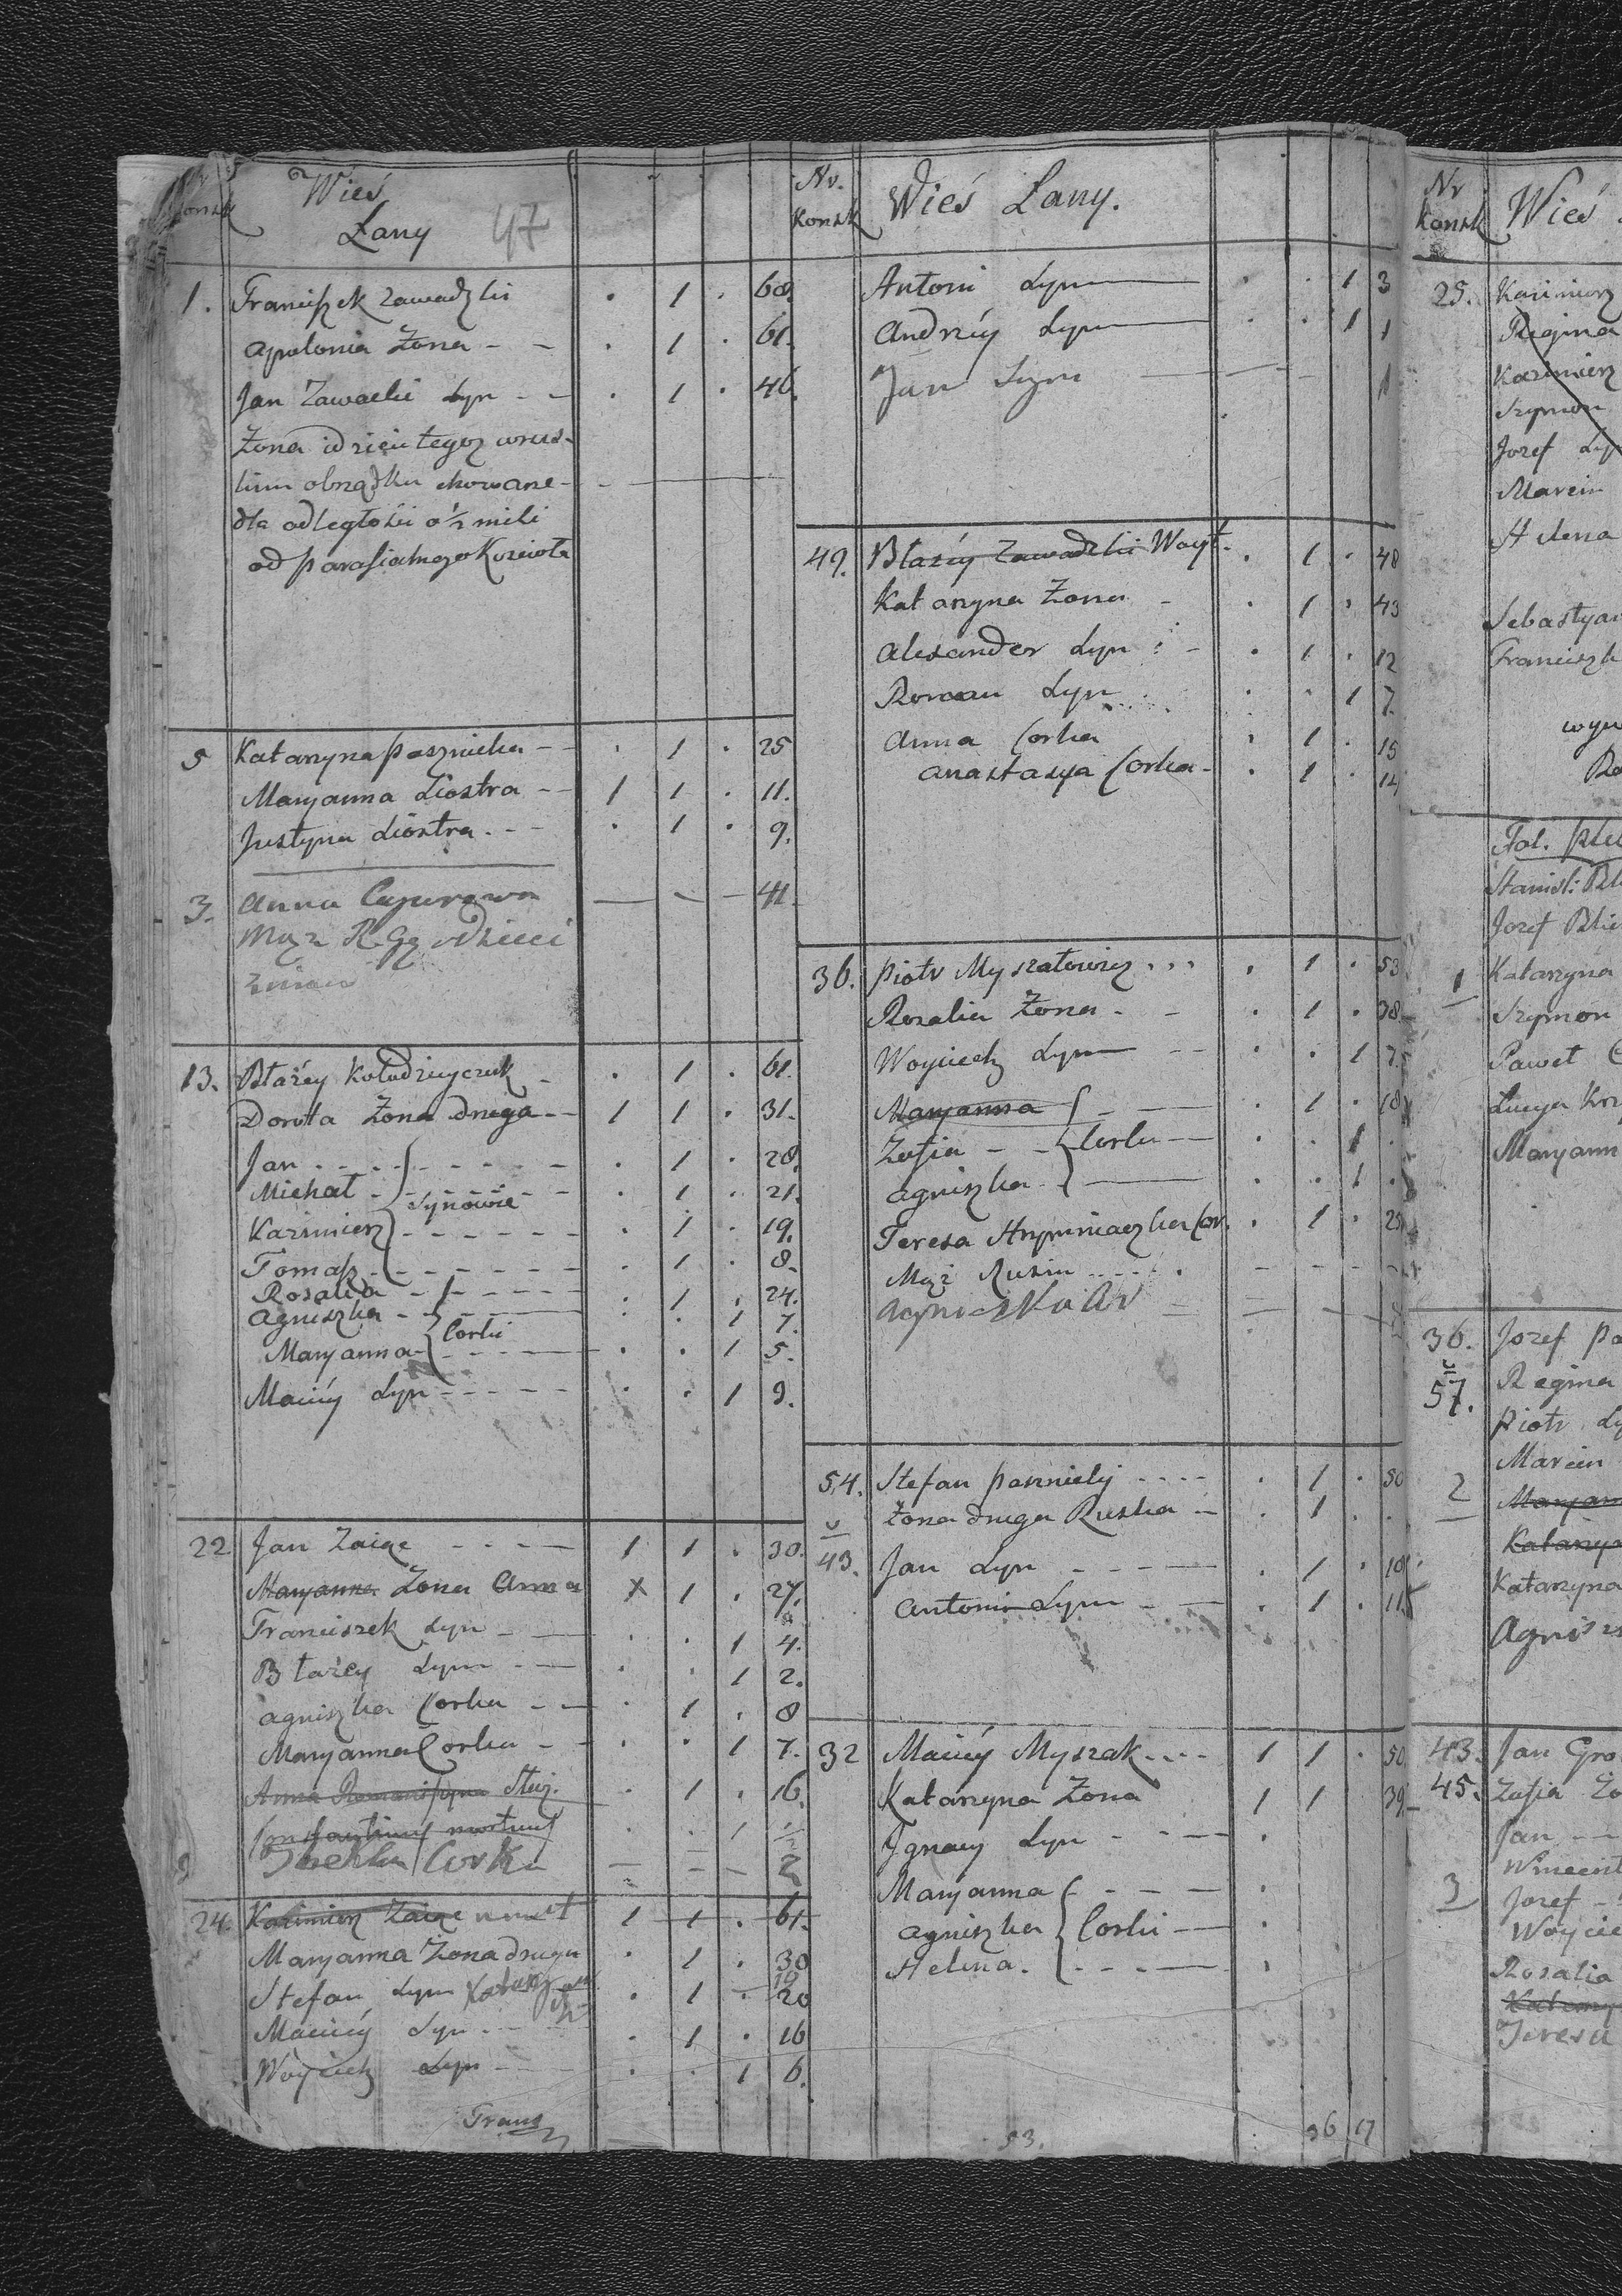 konsk Wieś
Łany 47
1. Franciszek Zawadzki . 1 . 68.
Apolonia Żona - - . 1 . 61.
Jan Zawadzki Syn - - . 1 . 46.
Żona i dzieci tegoz w rus-
kim obrządku chowane -
dla odległości o ½ mili
od parafialnego Kościoła
5 Katarzyna Pasznicka - - . 1 . 25
Maryanna Siostra - - 1 1 . 11.
Justyna Siostra . - - . 1 . 9.
3. Anna — - - 41.
Mąż R. G.
13. Błażey Kołudzieyczuk - . 1 . 61.
Dorota Żona druga - - 1 1 . 31.
Jan . . . . - - - - . 1 . 28.
Michał - - - - - . 1 . 21.
Synowie
Kazimierz - - - - - . 1 . 19.
Tomasz - - - - - . 1 . 8.
Rosalia - - - - - . 1 . 24.
Agniszka - - . . 1 7.
Corki
Maryanna - - - - . . 1 5.
Maciéy Syn - - - - - . . 1 9.
22 Jan Zaige - - - - 1 1 . 30.
Maryanna Żona Anna x 1 . 27.
Franciszek Syn - — . . 1 4.
Błażey Syn - — . . 1 2.
Agniszka Corka - - . 1 . 8
Maryanna Corka - - . . 1 7.
Anna Słuz. . 1 . 16.
Corka — - - 2
24. Kazimierz Zaige umarł 1 1 . 61.
Maryanna Żona druga . 1 . 30
19
Stefan Syn . 1 . 20
Maciéy Syn . - - . 1 . 16
Woyciech Syn - - . . 1 6.
Trans
Nr. konsk Wieś Łany.
Antoni Syn — . . 1 3
Andrzéy Syn — . . 1 1
Jan Syn — - - 1
49. Błażéy Zawadzki Woyt. . 1 . 48
Katarzyna Żona - . 1 . 43
Alexander Syn : - . 1 . 12
Roman Syn . . . 1 7.
Anna Corka . 1 . 15
Anastasya Corka - . 1 . 14
36. Piotr Myszatowicz . . . . 1 . 53
Rozalia Żona . - . 1 . 38
Woyciech Syn - - . . 1 7.
Maryanna - — . 1 . 18
Zofia - - Corki - — . . 1 .
Agniszka . — . . 1 .
Teresa Cor. . 1 . 25
Mąż Rusin . . . . . - - -
Agniszka
54. Stefan Paszniely . . . . . 1 . 50
Żona druga Ruska - . 1 . .
43. Jan Syn - - - — . 1 . 18
Antoni Syn - — . 1 . 11
32 Maciéy Myszak . . . . 1 1 . 50.
Katarzyna Żona 1 1 39.
Ignacy Syn - - - .
Maryanna - - — .
Agniszka Corki — .
Helena . - - — .
53. 36 17
Nr konsk Wieś
25. Kazimierz
Regina
Kazimierz
Szymon
Jozef Syn
Marcin
Helena
Sebastyan
Franciszk
Fol.
Stanisł:
Jozef
1 Katarzyna
Szymon
Paweł
Łucya
Maryann
36. Jozef
57. Regina
Piotr
Marcin
2 Maryann
Katarzyn
Katarzyna
Agnisz
43. Jan Gro
45. Zofia Żo
Jan - -
Wincent
3 Jozef -
Woycie
Rosalia
Katarzy
Teresa